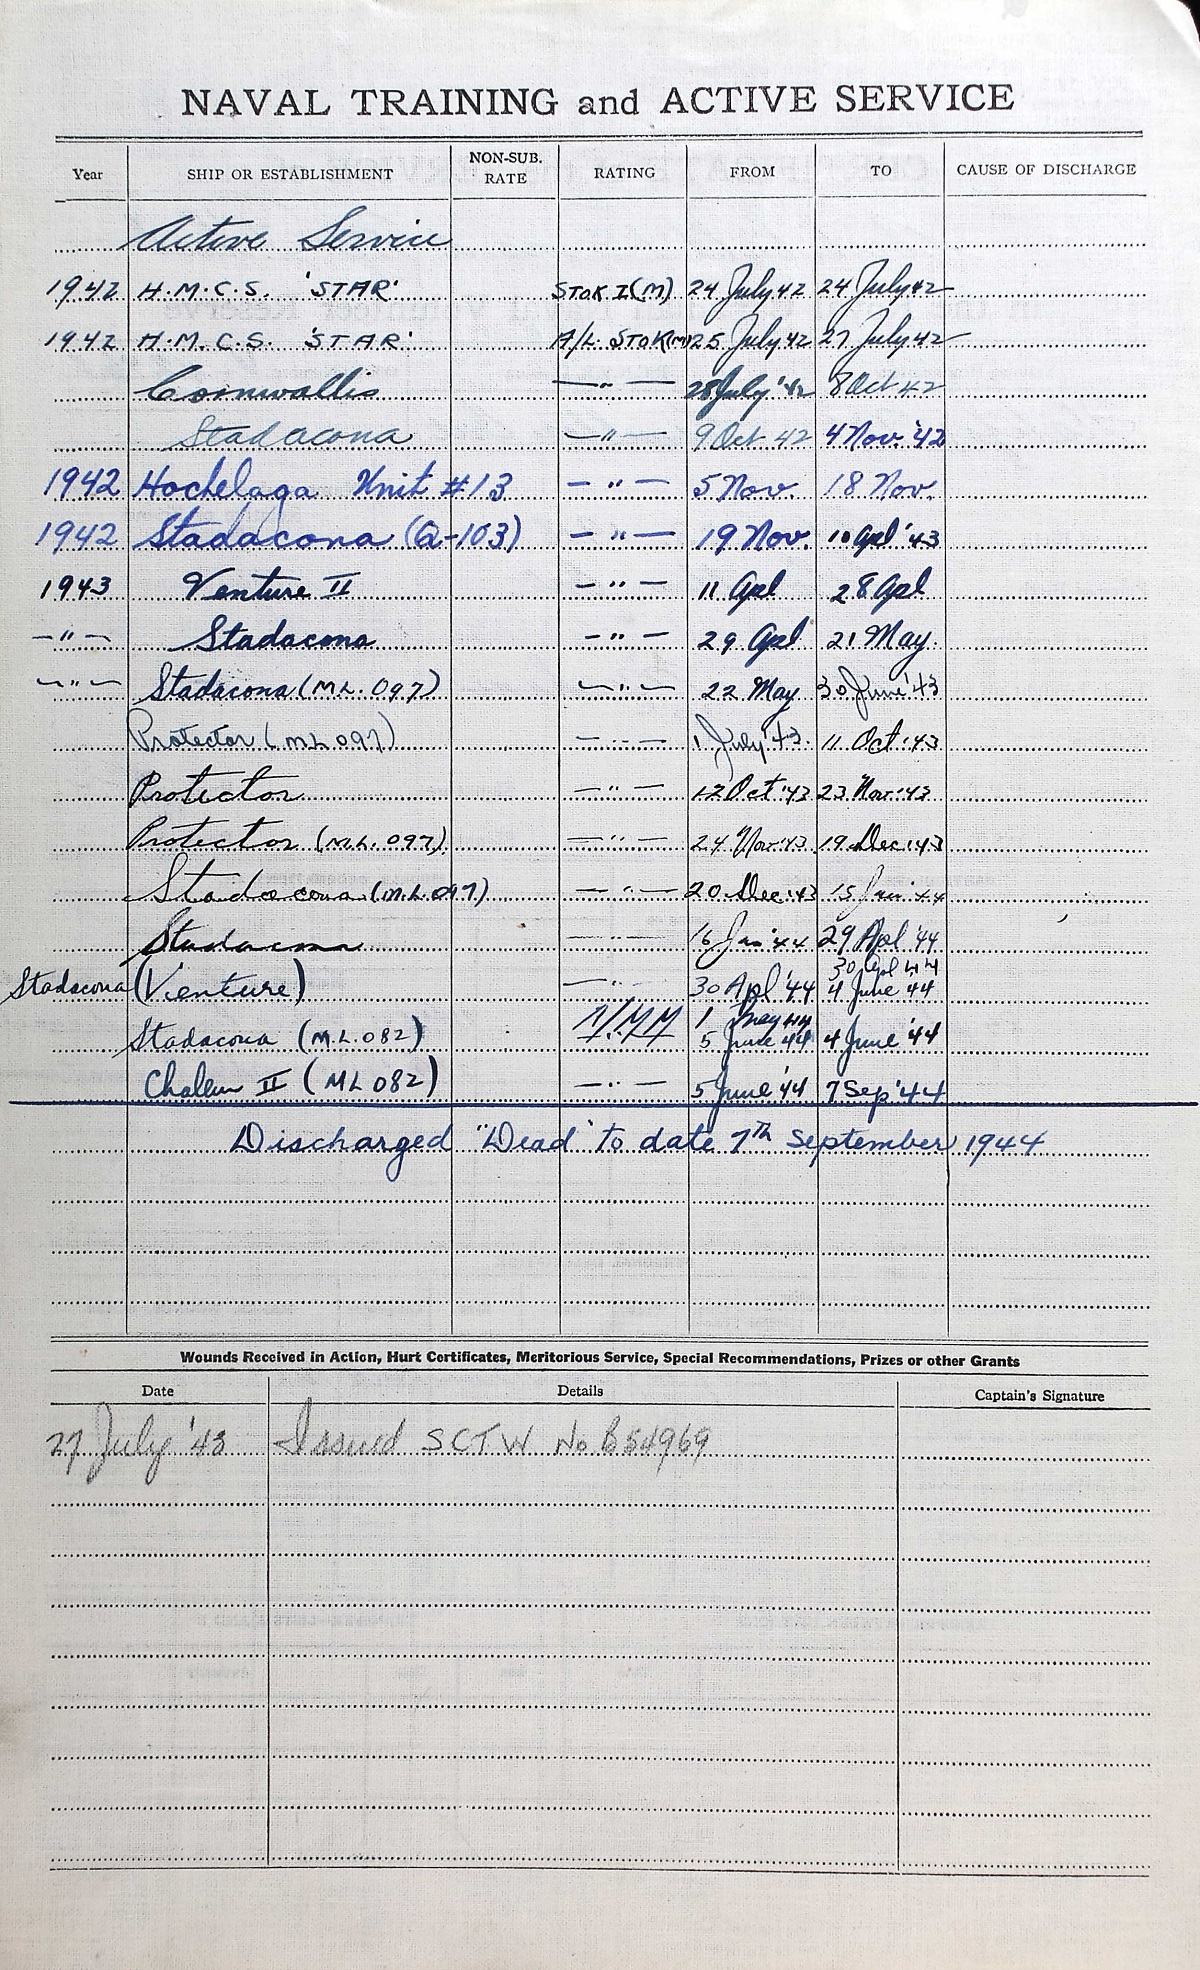 NAVAL TRAINING and ACTIVE SERVICE
Year SHIP OR ESTABLISHMENT NON-SUB. RATE RATING FROM TO CAUSE OF DISCHARGE
Active Service
1942 H.M.C.S. 'STAR' STOK I(M) 24 July 42 24 July 42
1942 H.M.C.S. 'STAR' A/L. STOK(M) 25 July 42 27 July 42
Cornwallis —"— 28 July '42 8 Oct 42
Stadacona —"— 9 Oct 42 4 Nov. '42
1942 Hochelaga Unit #13 —"— 5 Nov. 18 Nov.
1942 Stadacona (Q-103) —"— 19 Nov. 10 Apl '43
1943 Venture II —"— 11 Apl 28 Apl
—"— Stadacona —"— 29 Apl 21 May.
—"— Stadacona (M.L. 097) —"— 22 May 30 June '43
Protector (ML 097) —"— 1 July '43. 11 Oct '43
Protector —"— 12 Oct '43 23 Nov '43
Protector (M.L. 097) —"— 24 Nov '43 19 Dec '43
Stadacona (M.L. 097) —"— 20 Dec '43 15 Jan '44
Stadacona —"— 16 Jan '44 29 Apl '44
30 Apl 44
Stadacona (Venture) —"— 30 Apl '44 4 June '44
A/.M.M 1 May 44
Stadacona (M.L. 082) 5 June '44 4 June '44
Chaleur II (ML 082) —"— 5 June '44 7 Sep '44
Discharged "Dead" to date 7th September 1944
Wounds Received in Action, Hurt Certificates, Meritorious Service, Special Recommendations, Prizes or other Grants
Date Details Captain's Signature
27 July '43 Issued SCTW No B54969